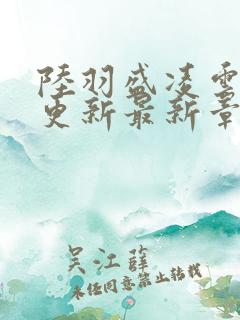 陸羽盛凌雲
更新最新章
吴江薛
未经同意禁止转载